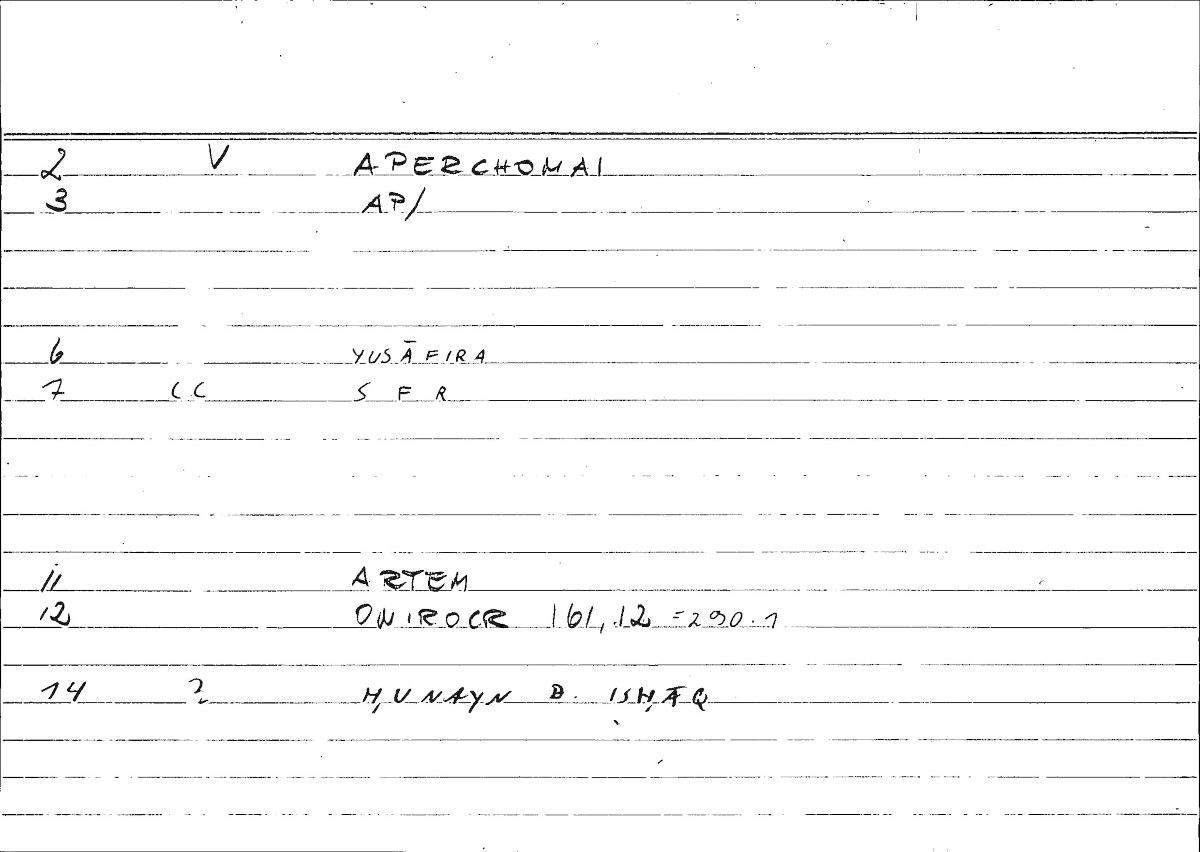 2 V APERCHOMAI
3 AP/
6 YUSĀFIRA
7 CC S F R
11 ARTEM
12 ONIROCR 161,12 =290.1
14 ? ḤUNAYN B. ISḤĀQ